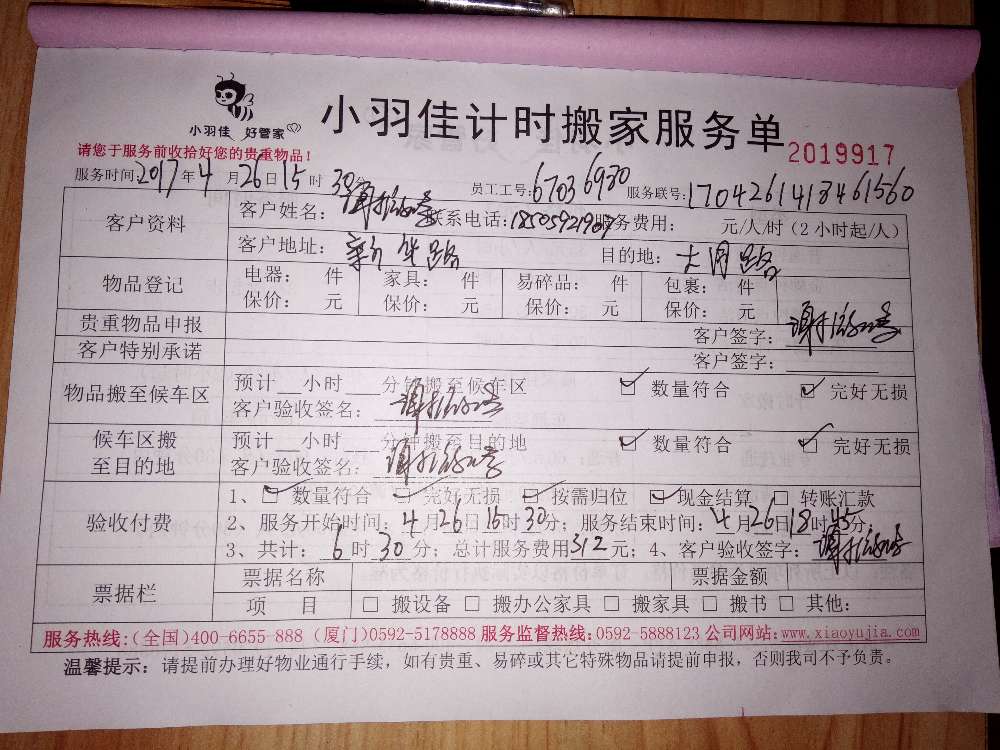 小羽佳 好管家
小羽佳计时搬家服务单
2019917
请您于服务前收拾好您的贵重物品！
服务时间:2017年4月26日15时30分 员工工号:6703 6930 服务联号:1704261413461560
客户资料
客户姓名: 联系电话: 服务费用: 元/人/时（2小时起/人）
客户地址: 新华路 目的地: 大同路
物品登记
电器: 件 家具: 件 易碎品: 件 包裹: 件
保价: 元 保价: 元 保价: 元 保价: 元
贵重物品申报 客户签字:
客户特别承诺 客户签字:
物品搬至候车区
预计__小时__分钟搬至候车区 ☑ 数量符合 ☑ 完好无损
客户验收签名:
候车区搬至目的地
预计__小时__分钟搬至目的地 ☑ 数量符合 ☑ 完好无损
客户验收签名:
验收付费
1、☑ 数量符合 ☑ 完好无损 ☑ 按需归位 ☑ 现金结算 □ 转账汇款
2、服务开始时间:4月26日15时30分；服务结束时间:4月26日18时45分
3、共计:6时30分；总计服务费用312元；4、客户验收签字:
票据栏
票据名称 票据金额
项 目 □ 搬设备 □ 搬办公家具 □ 搬家具 □ 搬书 □ 其他:
服务热线:(全国)400-6655-888 (厦门)0592-5178888 服务监督热线:0592-5888123 公司网站:www.xiaoyujia.com
温馨提示: 请提前办理好物业通行手续，如有贵重、易碎或其它特殊物品请提前申报，否则我司不予负责。